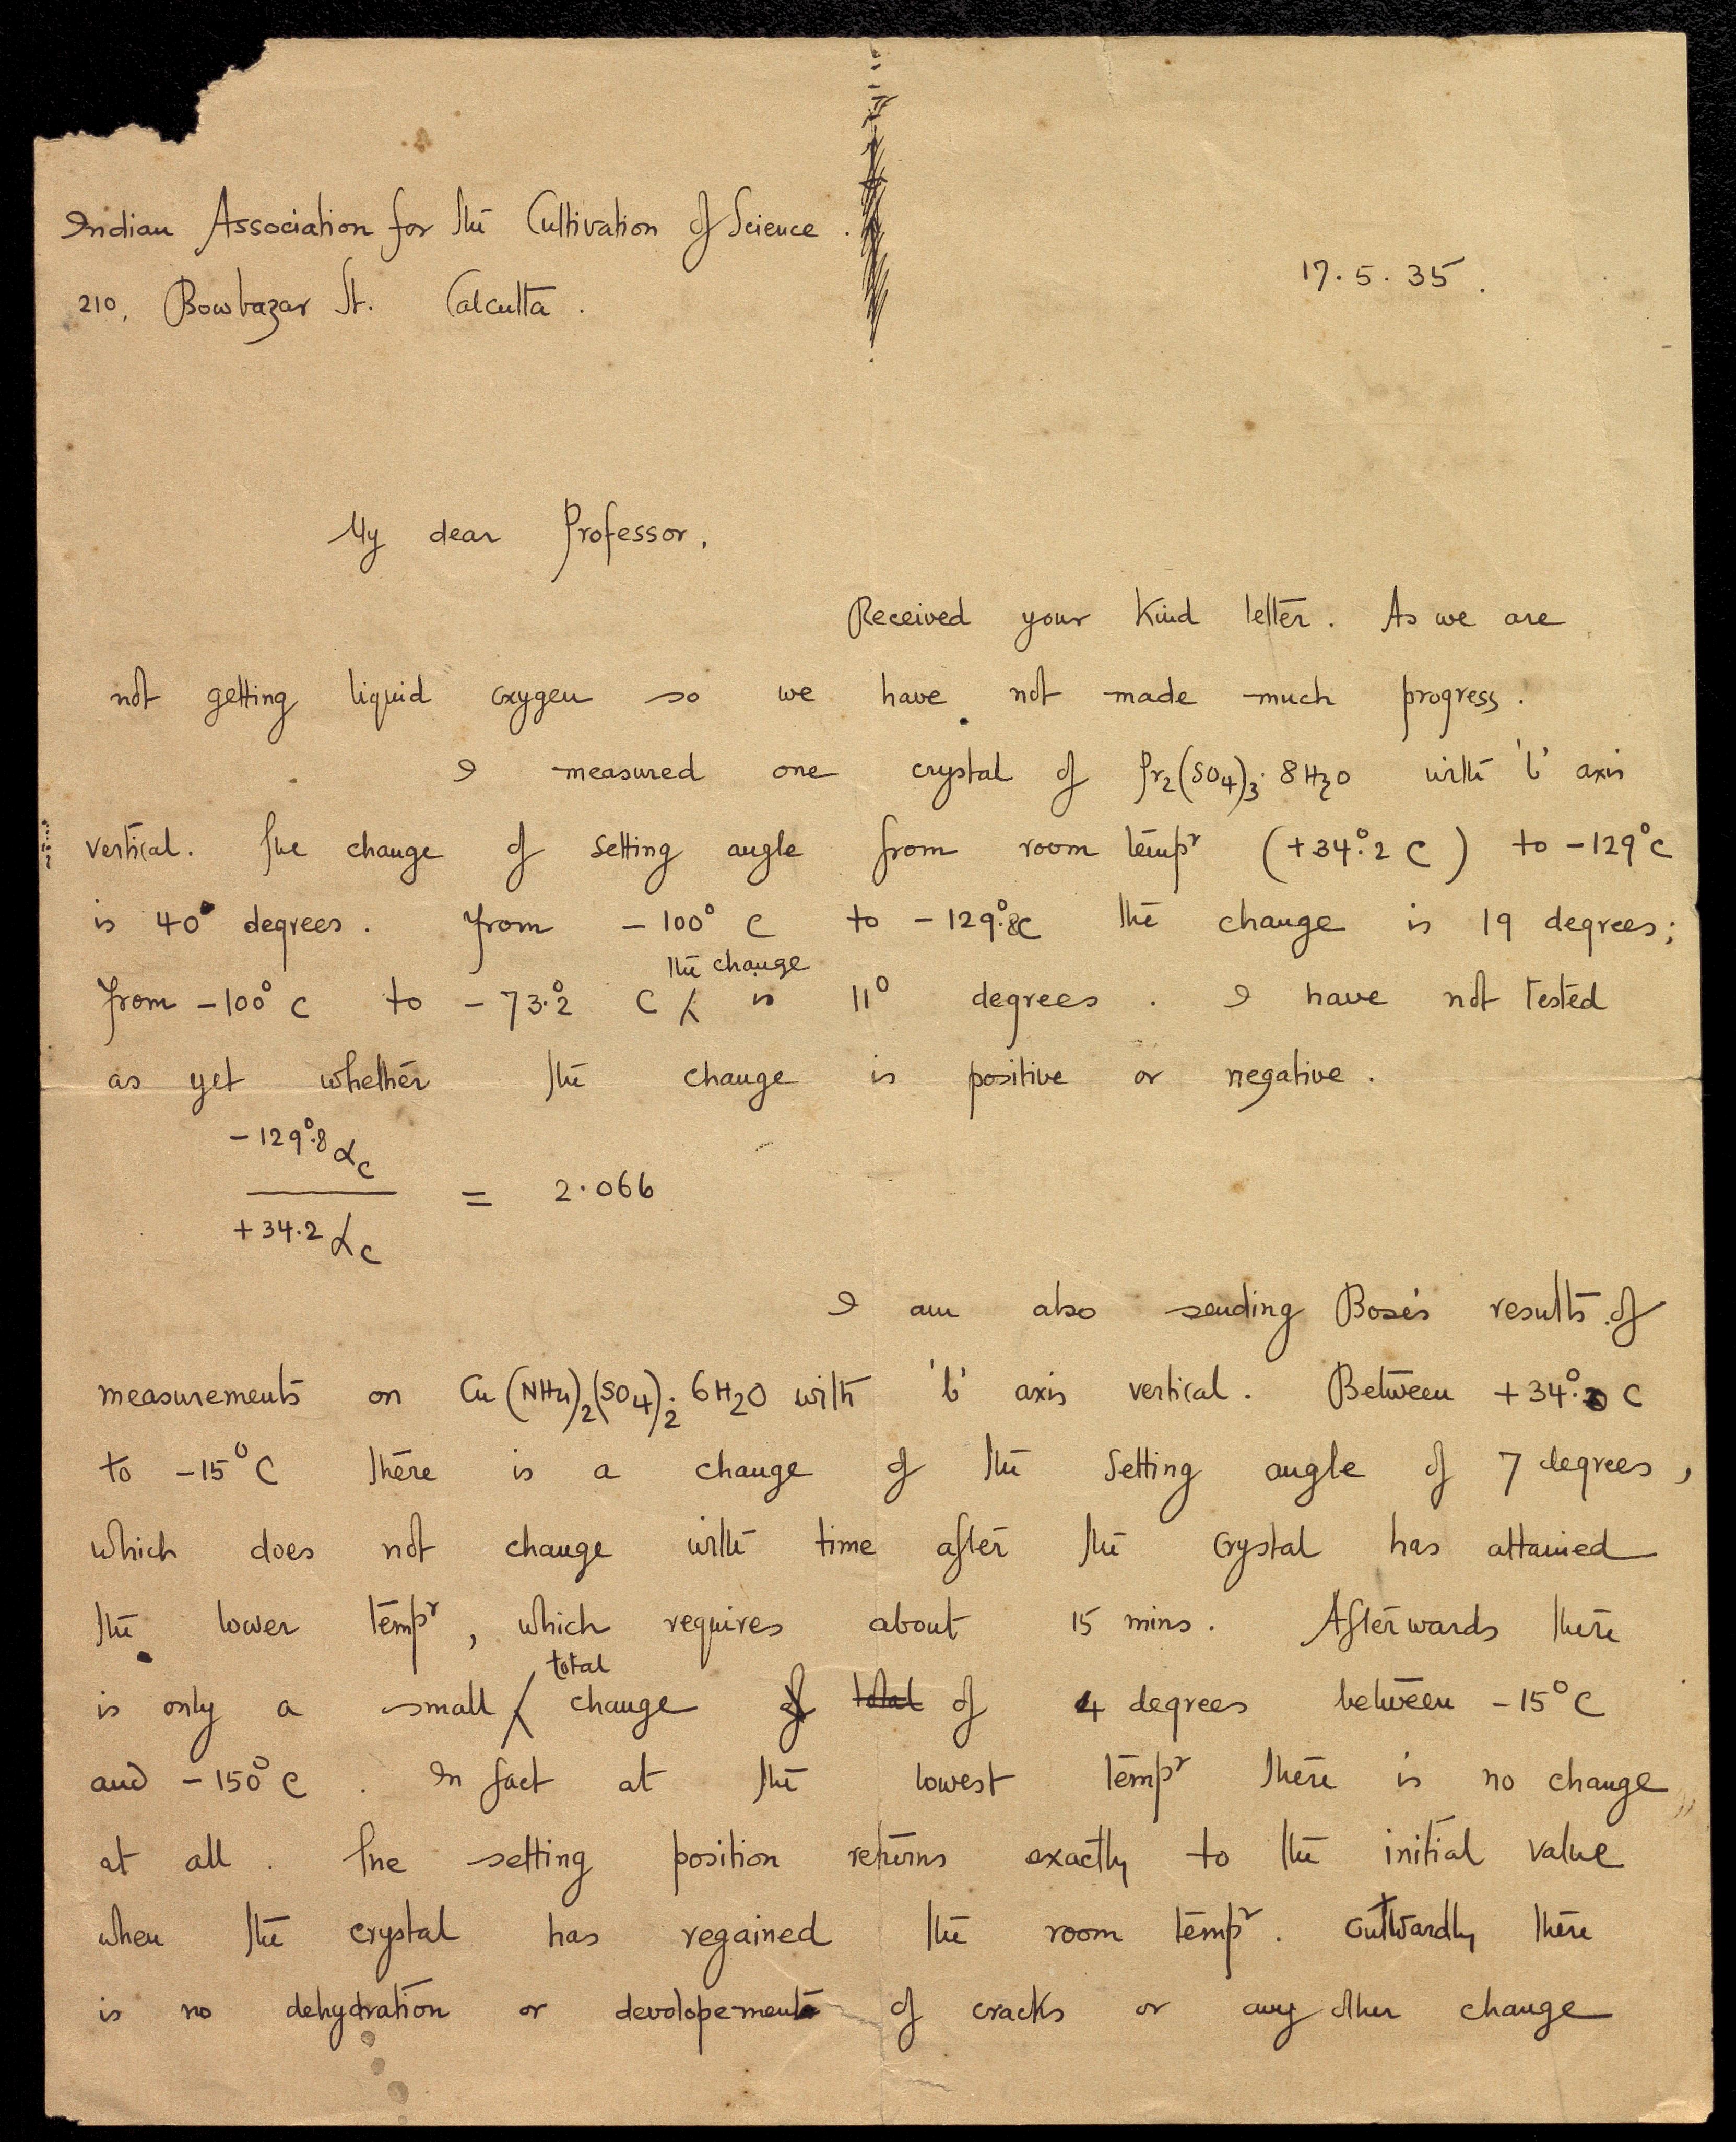 Indian Association for the Cultivation of Science.
17.5.35.
210, Bowbazar St. Calcutta.
My dear Professor,
Received your kind letter. As we are
not getting liquid oxygen so we have not made much progress.
I measured one crystal of Pr₂(SO₄)₃.8H₂O with 'b' axis
vertical. The change of setting angle from room tempʳ (+34°.2 C) to -129°C
is 40° degrees. From -100° C to -129°.8C the change is 19 degrees;
the change
from -100°C to -73°.2 C ⁁ is 11° degrees. I have not tested
as yet whether the change is positive or negative.
-129°.8 αc
= 2.066
+34.2 αc
I am also sending Bose's results of
measurements on Cu(NH₄)₂(SO₄)₂.6H₂O with 'b' axis vertical. Between +34°. C
to -15°C there is a change of the setting angle of 7 degrees,
which does not change with time after the crystal has attained
the lower tempʳ, which requires about 15 mins. Afterwards there
total
is only a small ⁁ change of total of 4 degrees between -15°C
and -150°C. In fact at the lowest tempʳ there is no change
at all. The setting position returns exactly to the initial value
when the crystal has regained the room tempʳ. Outwardly there
is no dehydration or devolopement of cracks or any other change